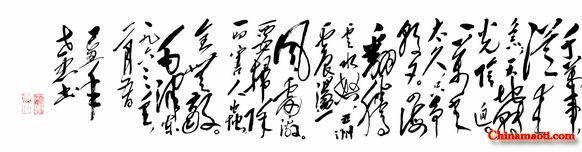 千万事，
从来
急。天地转
光阴迫。
一万年
太久，只争
朝夕。四海
翻腾
云水怒，五洲
震荡
风雷激。
要扫除
一切害人虫
全无敌。
毛泽东
一九六三年
Chinamaoti.com